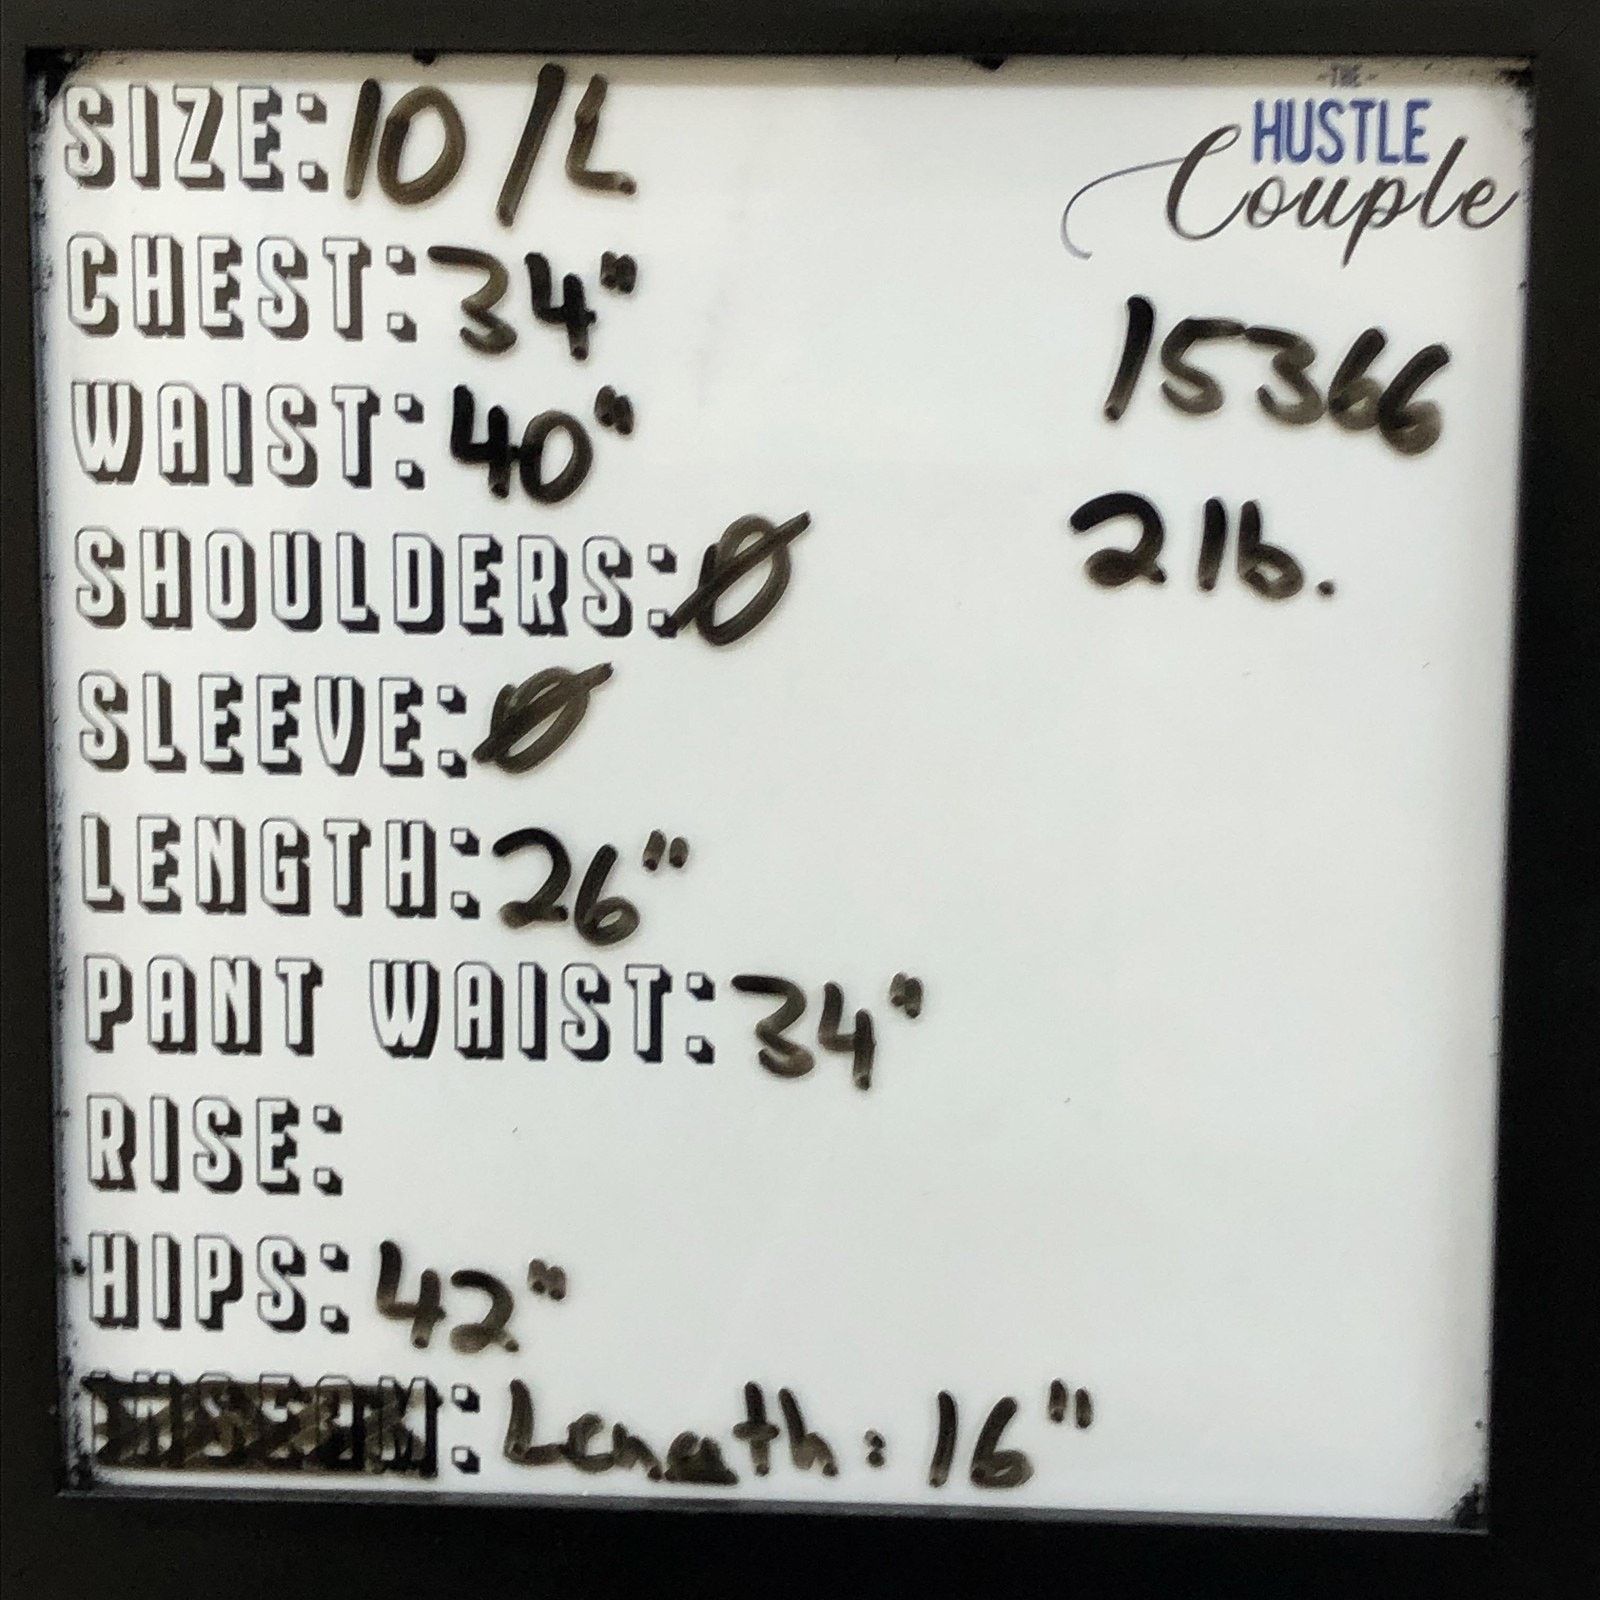 SIZE: 10 / L
CHEST: 34"
WAIST: 40"
SHOULDERS: Ø
SLEEVE: Ø
LENGTH: 26"
PANT WAIST: 34"
RISE:
HIPS: 42"
: Length: 16"
-THE-
HUSTLE
Couple
15366
2 lb.